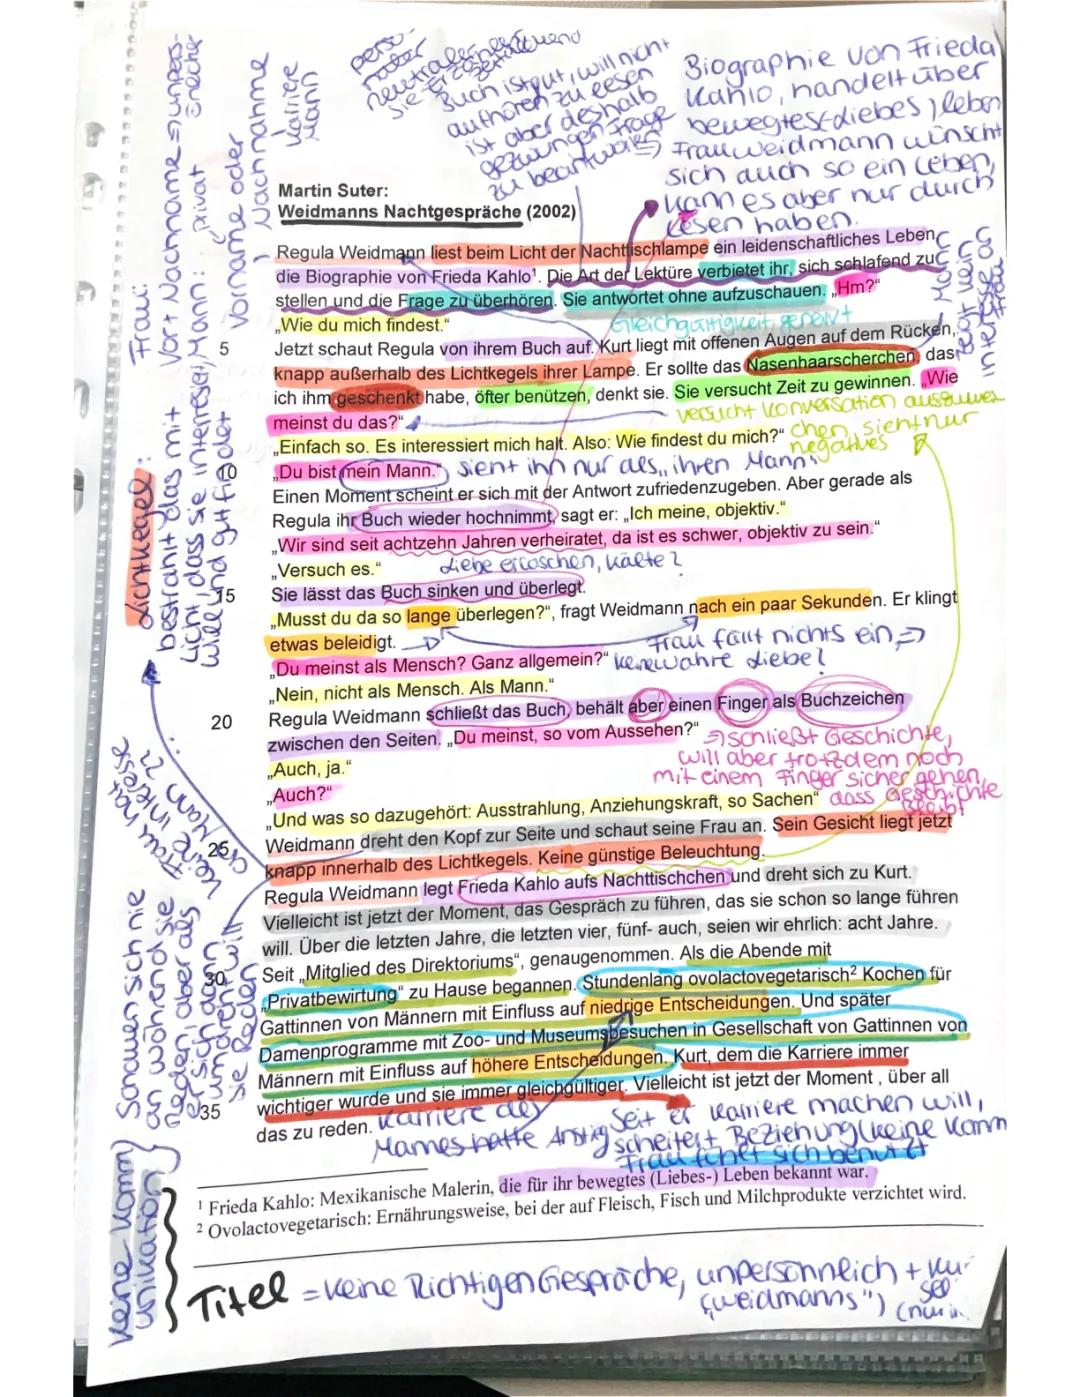 perso-
naler
neutraler
sie Erzähler
Buch ist gut, will nicht
aufhören zu lesen
ist aber deshalb
gezwungen Frage
zu beantworten
Biographie von Frieda
Kahlo, handelt über
bewegtes (Liebes) leben
Frau Weidmann wünscht
sich auch so ein Leben,
kann es aber nur durch
Lesen haben.
Karriere
Mann
Frau:
Vor + Nachname
Mann:
Vorname oder
Nachnahme
privat
Martin Suter:
Weidmanns Nachtgespräche (2002)
Regula Weidmann liest beim Licht der Nachttischlampe ein leidenschaftliches Leben,
die Biographie von Frieda Kahlo¹. Die Art der Lektüre verbietet ihr, sich schlafend zu
stellen und die Frage zu überhören. Sie antwortet ohne aufzuschauen. „Hm?“
„Wie du mich findest.“
Gleichgültigkeit, genervt
5 Jetzt schaut Regula von ihrem Buch auf. Kurt liegt mit offenen Augen auf dem Rücken,
knapp außerhalb des Lichtkegels ihrer Lampe. Er sollte das Nasenhaarscherchen, das
ich ihm geschenkt habe, öfter benützen, denkt sie. Sie versucht Zeit zu gewinnen. „Wie
meinst du das?“
versucht Konversation
chen, sieht nur
negatives
„Einfach so. Es interessiert mich halt. Also: Wie findest du mich?“
10 „Du bist mein Mann.“
sieht ihn nur als „ihren Mann“
Einen Moment scheint er sich mit der Antwort zufriedenzugeben. Aber gerade als
Regula ihr Buch wieder hochnimmt, sagt er: „Ich meine, objektiv.“
„Wir sind seit achtzehn Jahren verheiratet, da ist es schwer, objektiv zu sein.“
„Versuch es.“
Liebe erloschen, Kälte?
15 Sie lässt das Buch sinken und überlegt.
„Musst du da so lange überlegen?“, fragt Weidmann nach ein paar Sekunden. Er klingt
etwas beleidigt.
Frau fällt nichts ein, =>
keine wahre Liebe?
„Du meinst als Mensch? Ganz allgemein?“
„Nein, nicht als Mensch. Als Mann.“
20 Regula Weidmann schließt das Buch, behält aber einen Finger als Buchzeichen
zwischen den Seiten. „Du meinst, so vom Aussehen?“
=> schließt Geschichte,
will aber trotzdem noch
mit einem Finger sicher gehen,
dass Geschichte
bleibt
„Auch, ja.“
„Auch?“
„Und was so dazugehört: Ausstrahlung, Anziehungskraft, so Sachen“
25 Weidmann dreht den Kopf zur Seite und schaut seine Frau an. Sein Gesicht liegt jetzt
knapp innerhalb des Lichtkegels. Keine günstige Beleuchtung.
Regula Weidmann legt Frieda Kahlo aufs Nachttischchen und dreht sich zu Kurt.
Vielleicht ist jetzt der Moment, das Gespräch zu führen, das sie schon so lange führen
will. Über die letzten Jahre, die letzten vier, fünf- auch, seien wir ehrlich: acht Jahre.
30 Seit „Mitglied des Direktoriums“, genaugenommen. Als die Abende mit
„Privatbewirtung“ zu Hause begannen. Stundenlang ovolactovegetarisch² Kochen für
Gattinnen von Männern mit Einfluss auf niedrige Entscheidungen. Und später
Damenprogramme mit Zoo- und Museumsbesuchen in Gesellschaft von Gattinnen von
Männern mit Einfluss auf höhere Entscheidungen. Kurt, dem die Karriere immer
35 wichtiger wurde und sie immer gleichgültiger. Vielleicht ist jetzt der Moment , über all
das zu reden.
Karriere des
Mannes hatte Anstieg
Seit er Karriere machen will,
scheitert Beziehung (keine Komm
Frau fühlt sich benutzt
Lichtkegel:
bestrahlt das mit
Licht, dass sie interessiert
will und gut findet
Frau hat
keine Interesse
an Mann??
Schauen sich nie
an während sie
Reden, aber als
er sich dann
umdreht will
sie Reden
keine Komm
unikation
¹ Frieda Kahlo: Mexikanische Malerin, die für ihr bewegtes (Liebes-) Leben bekannt war.
² Ovolactovegetarisch: Ernährungsweise, bei der auf Fleisch, Fisch und Milchprodukte verzichtet wird.
Titel = keine Richtigen Gespräche, unpersönnlich +
(„Weidmanns“)